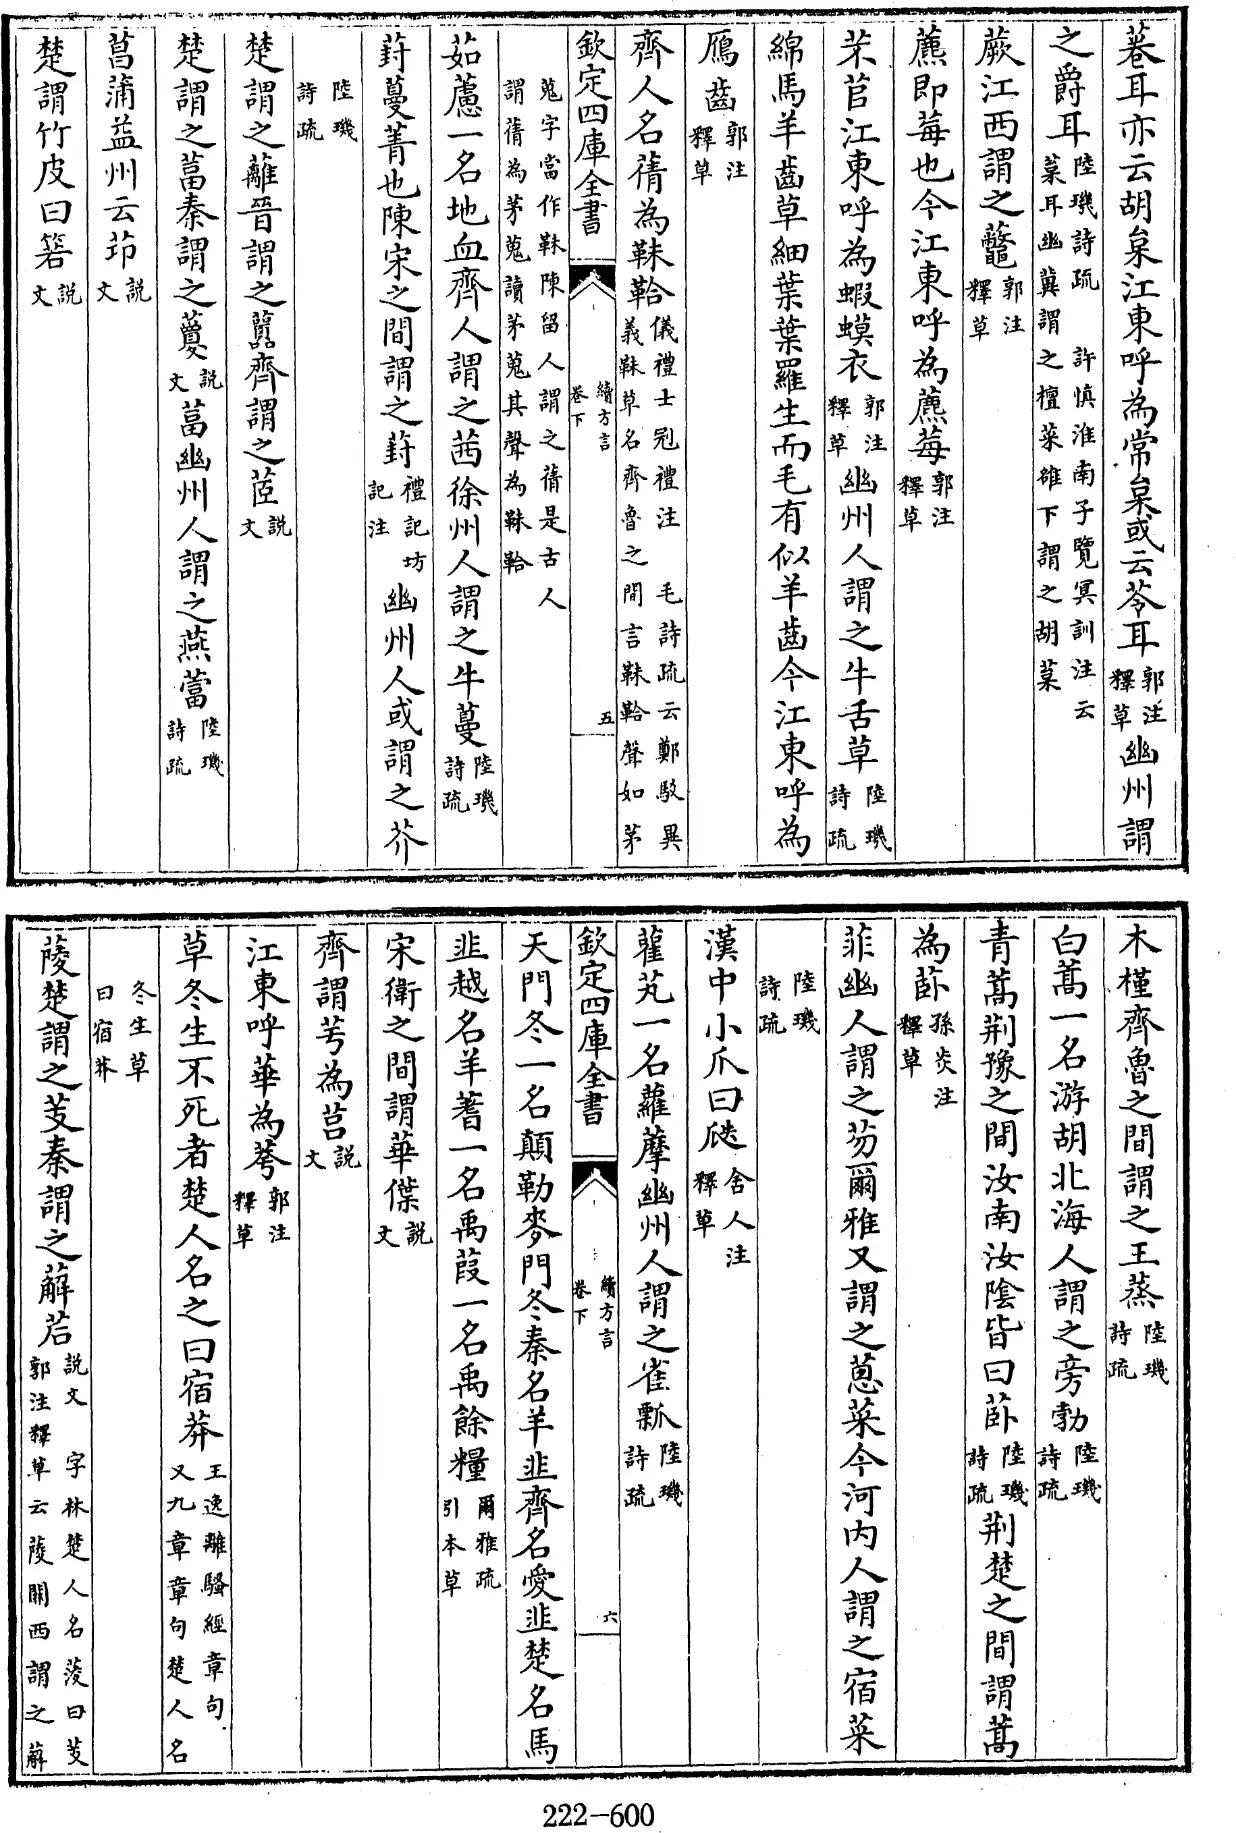 菤耳亦云胡枲江東呼為常枲或云苓耳郭注釋草幽州謂
之爵耳陸璣詩疏 許慎淮南子覽冥訓注云葈耳幽冀謂之檀菜雒下謂之胡葈
蕨江西謂之虌郭注釋草
藨即莓也今江東呼為藨莓郭注釋草
芣苢江東呼為蝦蟆衣郭注釋草幽州人謂之牛舌草陸璣詩疏
綿馬羊齒草細葉葉羅生而毛有似羊齒今江東呼為
鴈齒郭注釋草
齊人名蒨為韎韐儀禮士冠禮注 毛詩疏云鄭駮異義韎草名齊魯之間言韎韐聲如茅
欽定四庫全書 續方言卷下 五
蒐字當作韎陳留人謂之蒨是古人謂蒨為茅蒐讀茅蒐其聲為韎韐
茹藘一名地血齊人謂之茜徐州人謂之牛蔓陸璣詩疏
葑蔓菁也陳宋之間謂之葑禮記坊記注幽州人或謂之芥
陸璣詩疏
楚謂之蘺晉謂之虈齊謂之茝說文
楚謂之葍秦謂之藑說文葍幽州人謂之燕䔰陸璣詩疏
菖蒲益州云茚說文
楚謂竹皮曰箬說文
木槿齊魯之間謂之王蒸陸璣詩疏
白蒿一名游胡北海人謂之旁勃陸璣詩疏
青蒿荆豫之間汝南汝陰皆曰菣陸璣詩疏荆楚之間謂蒿
為菣孫炎注釋草
菲幽人謂之芴爾雅又謂之蒠菜今河内人謂之宿菜
陸璣詩疏
漢中小瓜曰瓞舍人注釋草
雚芄一名蘿藦幽州人謂之雀瓢陸璣詩疏
欽定四庫全書 續方言卷下 六
天門冬一名顛勒麥門冬秦名羊韭齊名愛韭楚名馬
韭越名羊蓍一名禹葭一名禹餘糧爾雅疏引本草
宋衛之間謂華㒒說文
齊謂芌為莒說文
江東呼華為荂郭注釋草
草冬生不死者楚人名之曰宿莽王逸離騷經章句又九章章句楚人名
冬生草曰宿莽
蔆楚謂之芰秦謂之薢茩說文 字林楚人名蔆曰芰郭注釋草云蔆關西謂之薢
222-600